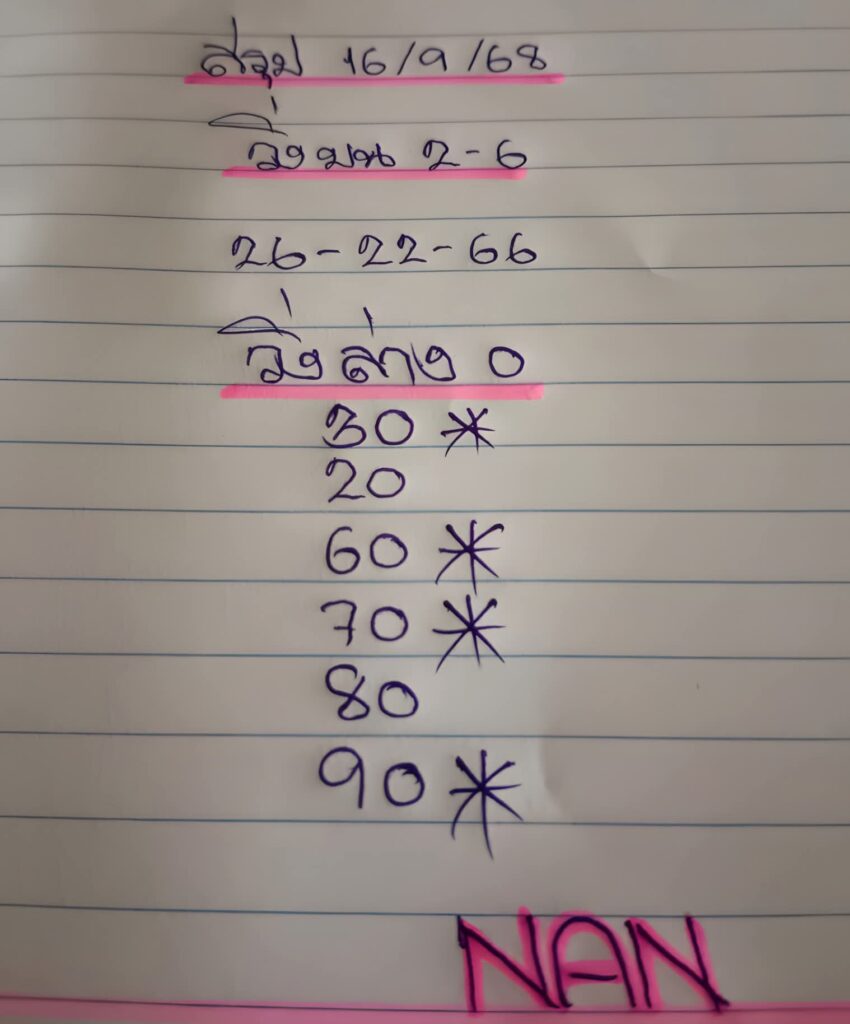 สรุป 16/9/68
วิ่งบน 2-6
26-22-66
วิ่งล่าง 0
30 *
20
60 *
70 *
80
90 *
NAN